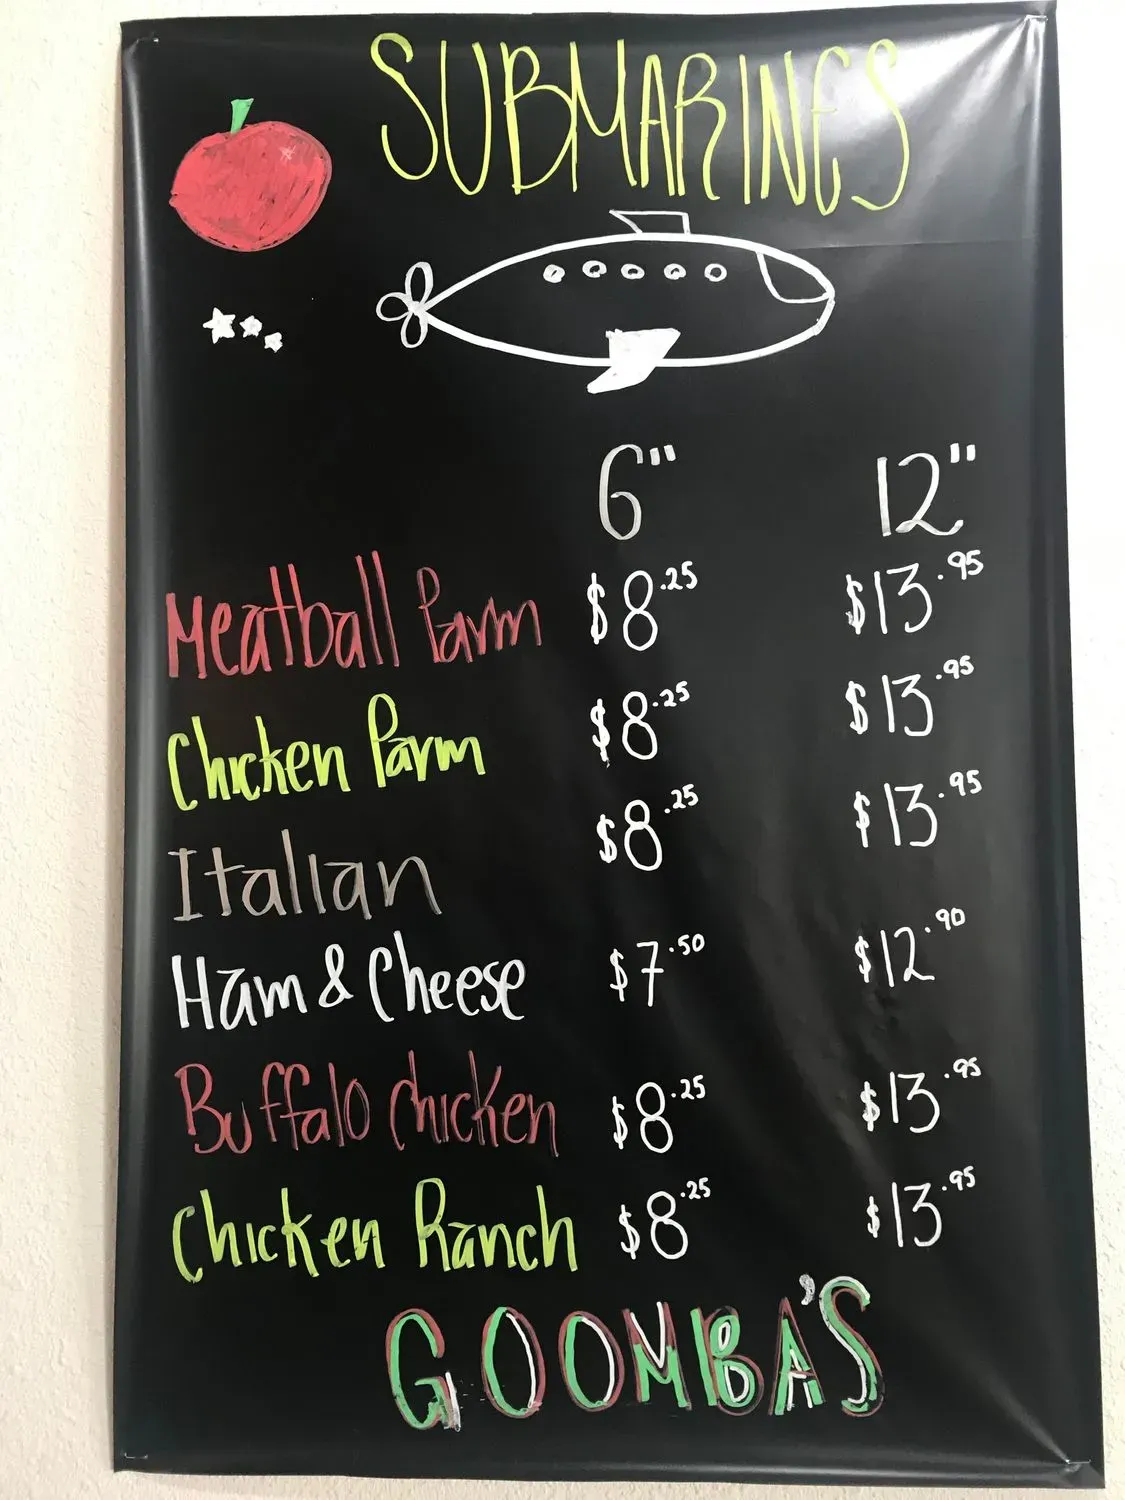 SUBMARINES
6" 12"
Meatball Parm $8.25 $13.95
Chicken Parm $8.25 $13.95
Italian $8.25 $13.95
Ham & Cheese $7.50 $12.90
Buffalo Chicken $8.25 $13.95
Chicken Ranch $8.25 $13.95
GOOMBA'S